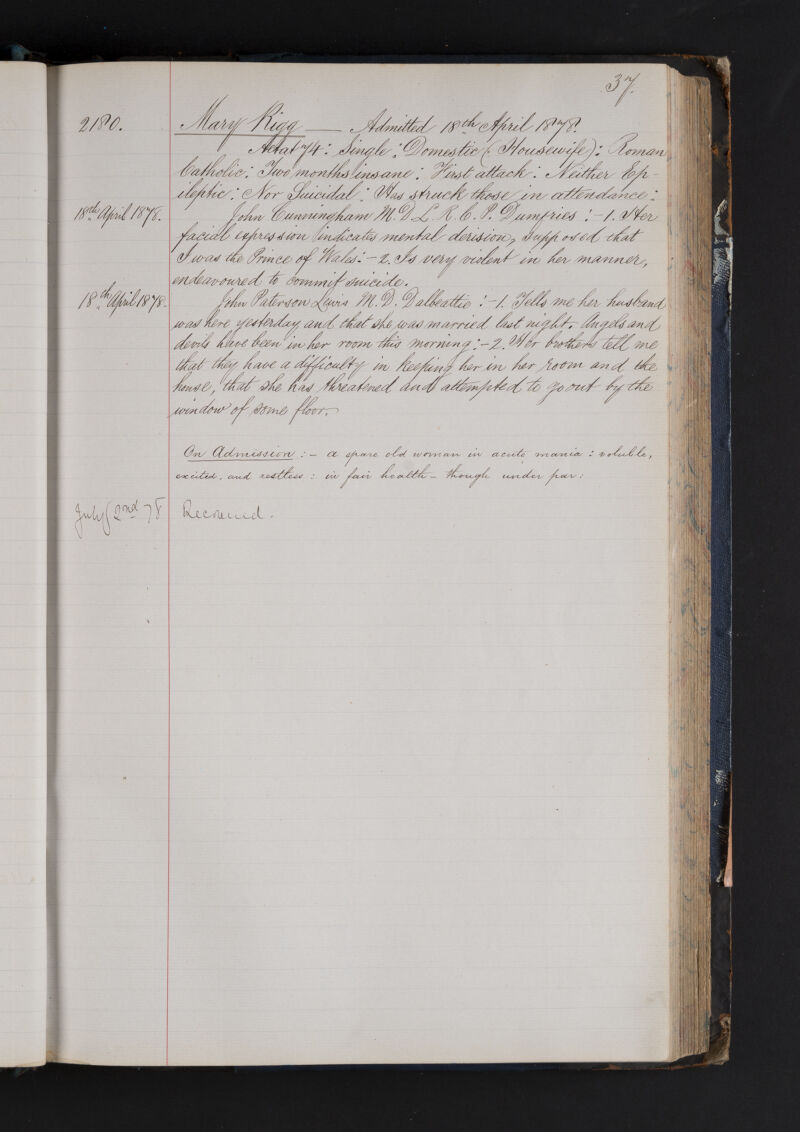 37.
2180. Mary Rigg — Admitted 18th April 1878.
Aetat 74: Single: Domestic (Housewife): Roman
Catholic: Two months insane: First attack: Neither Ep-
ileptic: Nor Suicidal: Has struck those in attendance:
18th April 1878. John Cunningham M.D. L.R.C.P. Dumfries:-1. Her
facial expression indicates mental derision, supposed that
I was the Prince of Wales:-2. Is very violent in her manner,
endeavoured to commit suicide.
18th April 1878. John Paterson Lewis M.D. Dalbeattie:-1. Tells me her husband
was here yesterday and that she was married last night. Angels and
devils have been in her room this morning:-2. Her brothers tell me
that they have a difficulty in keeping her in her room and the
house, that she has threatened and attempted to go out by the
window of some floor.
On Admission:- a spare old woman in acute mania: voluble,
excited, and restless: in fair health - though under par:
July 2nd 78 Recovered.